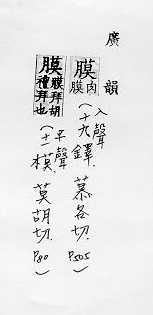 廣韻
膜 肉膜 (入聲十九鐸. 慕各切. P505)
膜 膜拜胡禮拜也 (平聲十一模. 莫胡切. P80)